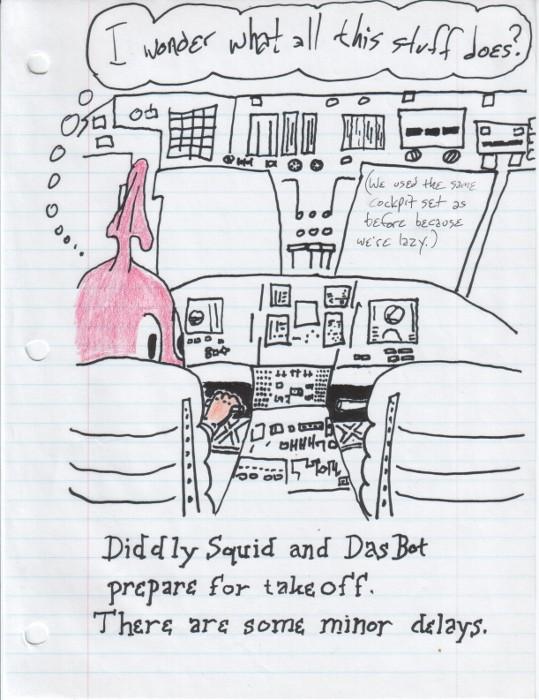 I wonder what all this stuff does?
(We used the same
cockpit set as
before because
we're lazy.)
Diddly Squid and Das Bot
prepare for take off.
There are some minor delays.